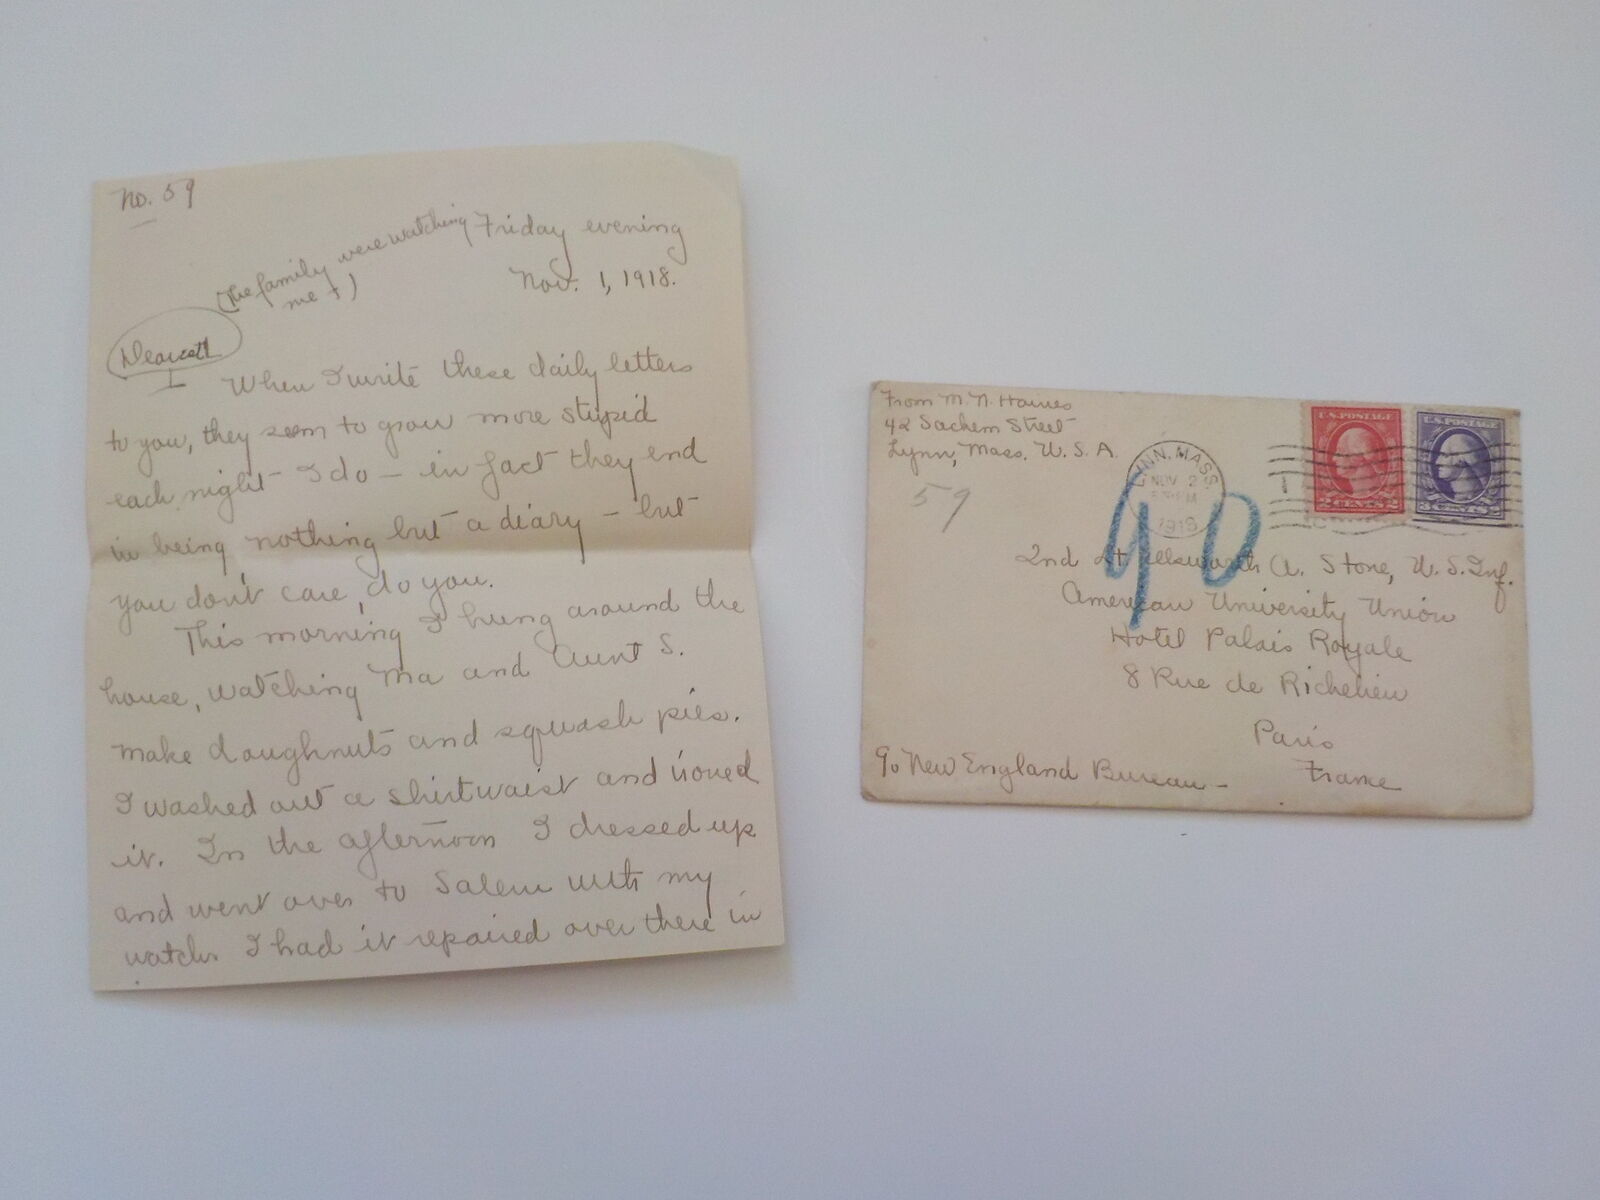 No. 59
(The family were watching
me +)
Friday evening
Nov. 1, 1918.
Dearest
When I write these daily letters
to you, they seem to grow more stupid
each night I do — in fact they end
in being nothing but a diary – but
you don't care, do you.
This morning I hung around the
house, watching Ma and Aunt S.
make doughnuts and squash pies.
I washed out a shirtwaist and ironed
it. In the afternoon I dressed up
and went over to Salem with my
watch. I had it repaired over there in
From M. N. Haines
42 Sachem Street
Lynn, Mass. U. S. A.
59
LYNN, MASS.
NOV 2
1918
U.S. POSTAGE
2 CENTS 2
U.S. POSTAGE
3 CENTS 3
90
2nd Lt. Ellsworth A. Stone, U. S. Inf.
American University Union
Hotel Palais Royale
8 Rue de Richelieu
Paris
France
c/o New England Bureau –